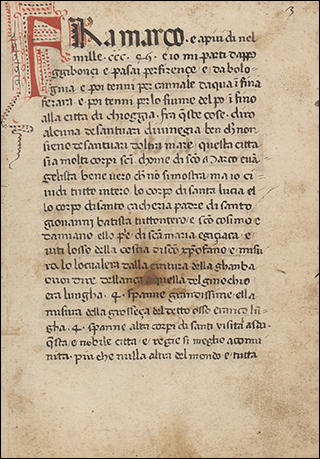 3
FRa marco. e apiu di nel
mille. ccc. e io mi parti dappo
ggibonci e pasai per firence e da bolo
gnia e poi tenni per cannale da qua in fina
ferara e poi tenni per lo fiume del po in fino
alla citta di chioggia fra queste cose. diro
alcuna de santuari di vinegia ben che non
sieno de santuari doltra mare. questa citta
si a molti corpi sancti. chome di sco Marco evā
gelista bene vero che no si mostra ma io ci
vidi tutto intero. lo corpo di santa lucia el
lo corpo di santo cacheria padre di santo
giovanni batista tutto intero e sco cosimo e
damiano ello pe. di sca maria egiciaca. e
viti losso della coscia di sco xpofano e misu
ra. lo locu dalla cintura della ghamba
ovoi dire dellanca quella del ginochio
era lungha .4. spanne grandissime. ella
misura della grosseça del detto osso era lū
gha .4. spanne altri corpi di santi visitai
qsta e nobile citta. e regie si meglio a comu
nita. piu che nulla altra del mondo e tutta